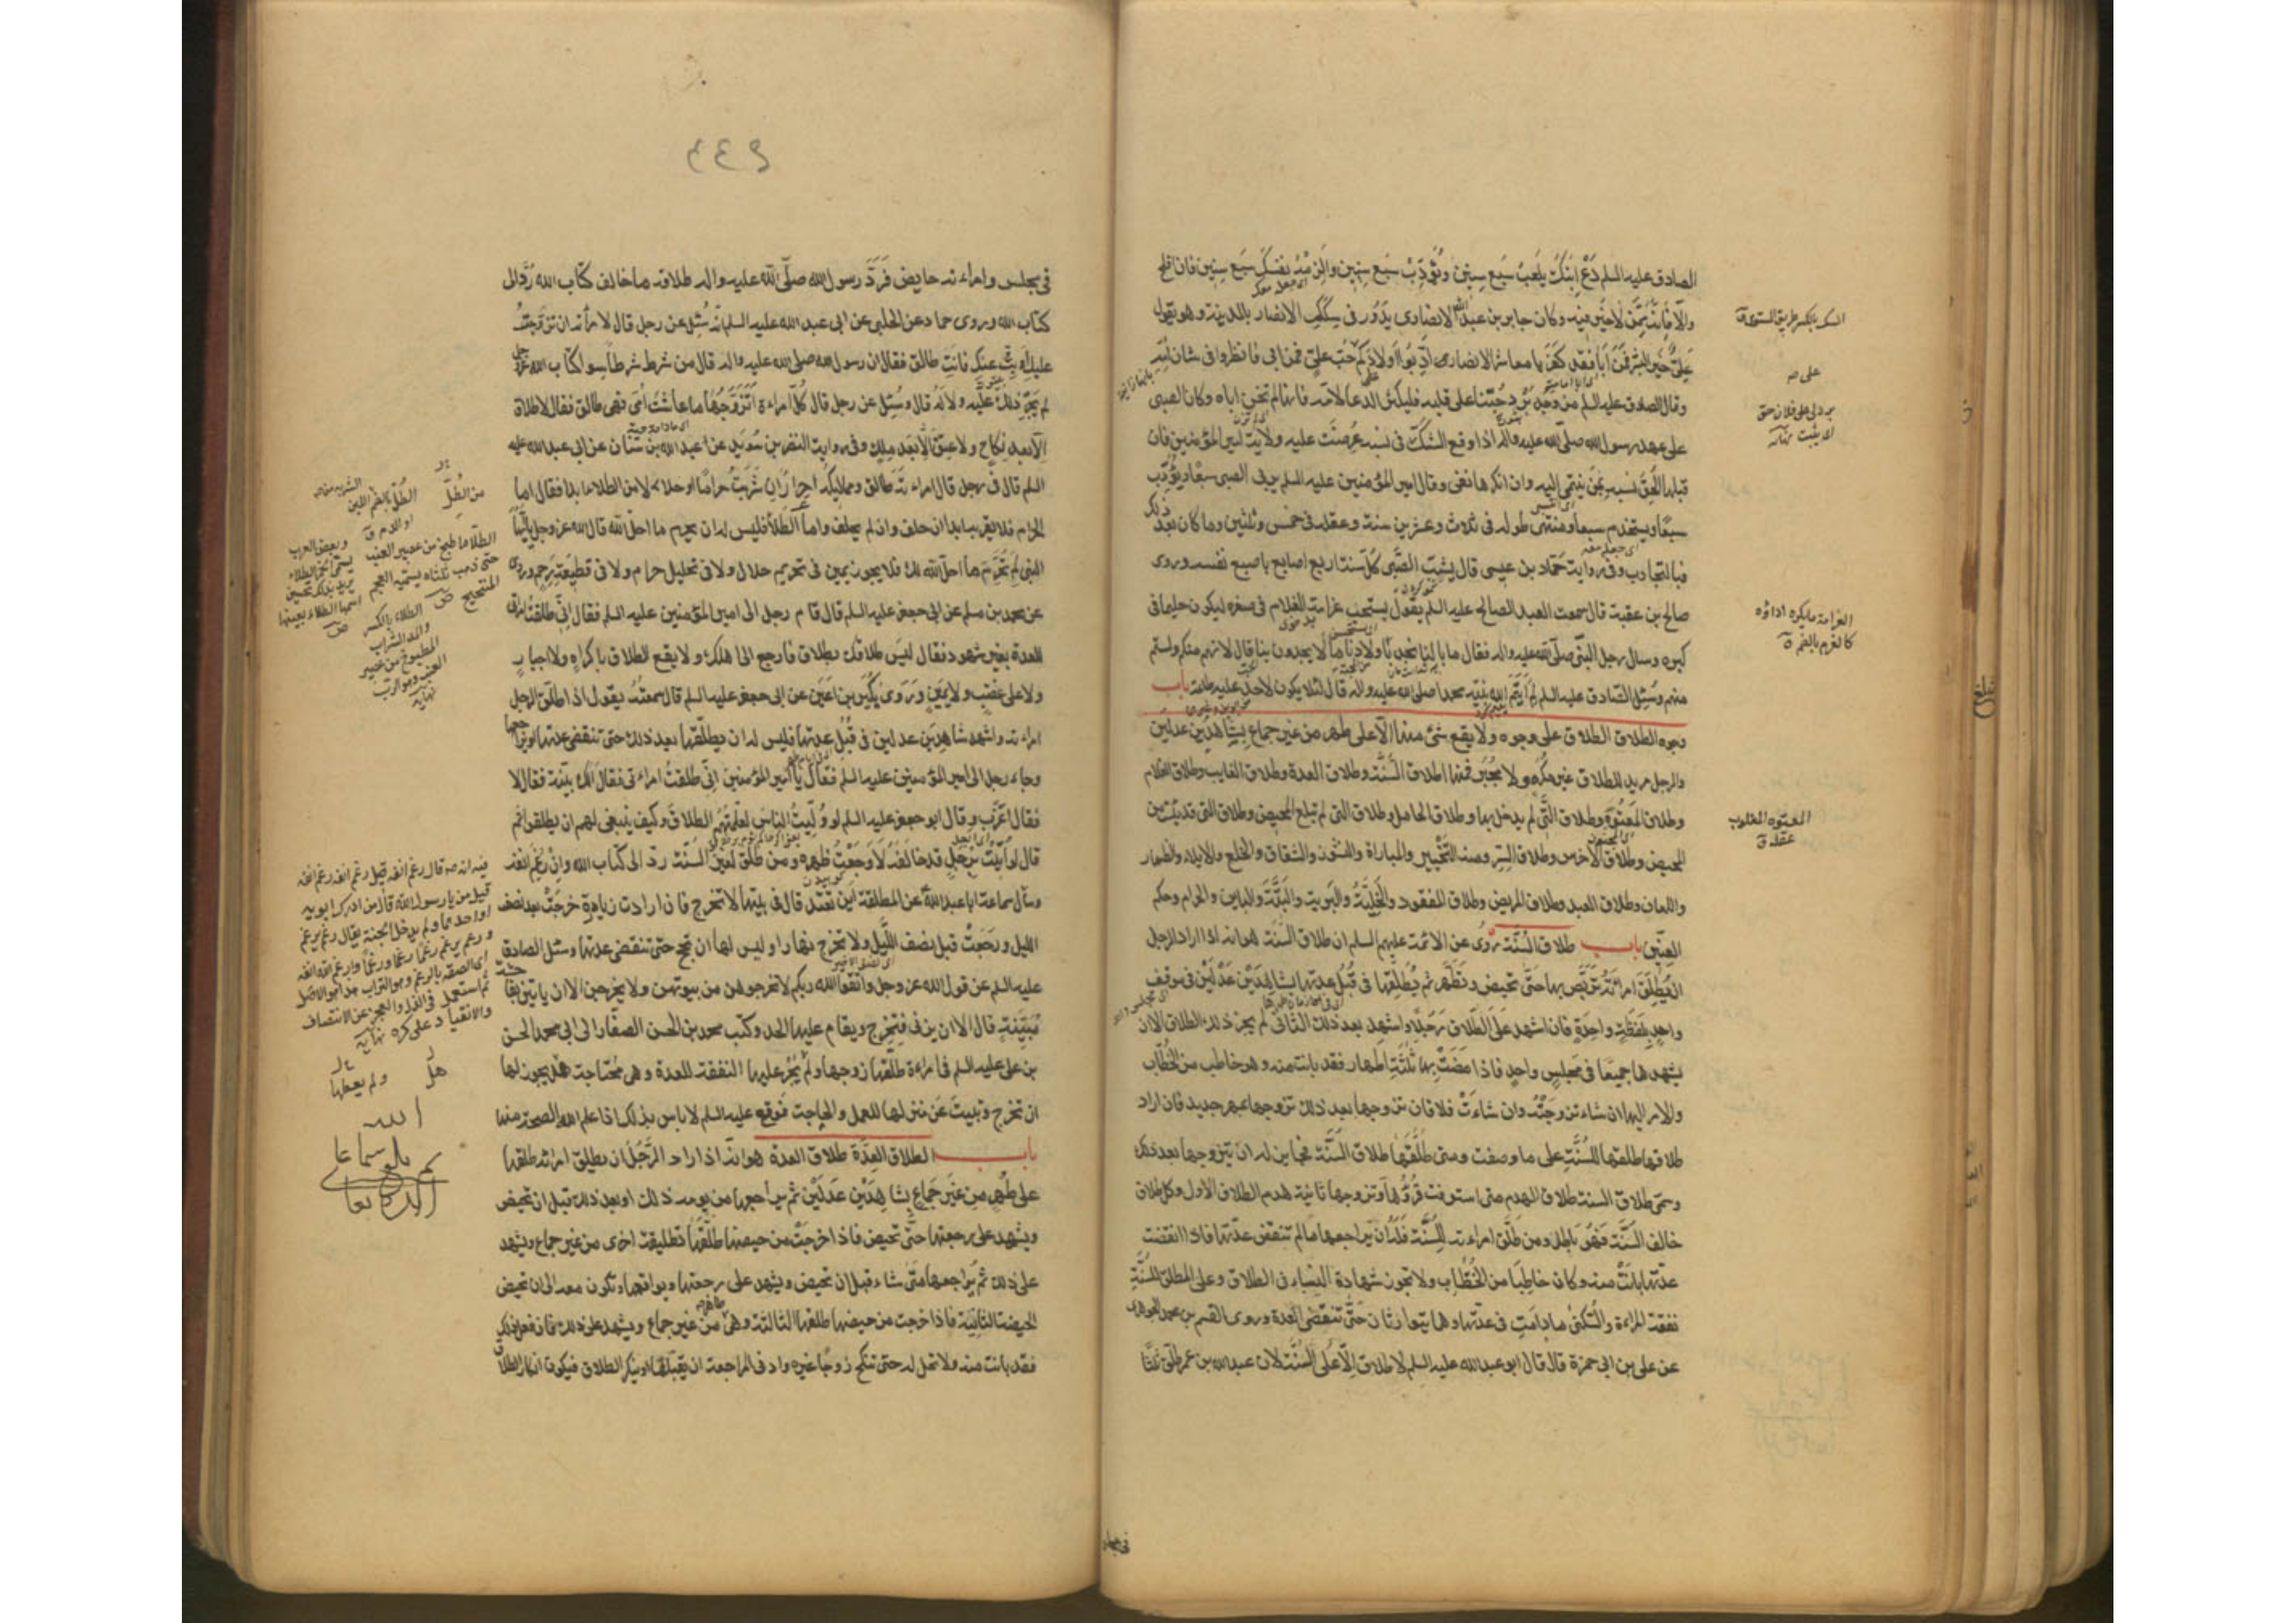 الصادق عليه السلم دَعْ ابنَكَ يلعبْ سَبع سِنين ويُؤدَّبْ سَبع سِنين وألزِمْهُ نفسَكَ سَبع سِنين فان افلح
والّا فانّه ممّن لا خير فيه وكان جابر بن عبد الله الانصاری يَدُور فی سِكَكِ الانصار بالمدينة وهو يقول
عَلیٌّ خير البشر فمَن أبا فقد كفر يا معاشر الانصار ادّبوا اولادكم حُبّ علیّ فمن ابی فانظروا فی شان امّه
وقال الصادق عليه السلم من وجد بَرْدَ حُبّنا علی قلبه فليكثر الدعا لامّه فانها لم تخن اباه وكان الصبی
علی عهد رسول الله صلّی الله عليه واله اذا وقع الشكّ فی نسبه عُرِضَت عليه ولاية امير المؤمنين فان
قبلها اُلحِقَ نسبه بمَن ينتمی اليه وان انكرها نفی وقال امير المؤمنين عليه السلم يربی الصبی سبعًا ويؤدّب
سبعًا ويستخدم سبعًا ومنتهی طوله فی ثلاث وعشرين سنة وعقله فی خمس وثلثين وما كان بعد ذلك
فبالتجارب وفی رواية حمّاد بن عيسی قال يشبّ الصَّبی كلّ سنة اربع اصابع باصبع نفسه وروی
صالح بن عقبة قال سمعت العبد الصالح عليه السلم يقول يستحب عرامة الغلام فی صغره ليكون حليما فی
كبره وسال رجل النبّی صلّی الله عليه واله فقال ما بالنا نجد باولادنا ما لا يجدون بنا قال لانهم منكم ولستم
منهم وسُئِل الصّادق عليه السلم لِمَ أيتَم الله نبيّه محمدا صلی الله عليه واله قال لئلا يكون لاحد عليه طاعة باب
وجوه الطلاق الطلاق علی وجوه ولا يقع شیء منها الّا علی طهر من غير جماع بشاهدين عدلين
والرجل مريد للطلاق غير مكره ولا مجبَر فمنها طلاق السُّنّة وطلاق العدة وطلاق الغايب وطلاق الغلام
وطلاق المعتوه وطلاق التّی لم يدخل بها وطلاق الحامل وطلاق التی لم تبلغ المحيض وطلاق التی قد يئست من
المحيض وطلاق الاخرس وطلاق السِرّ ومنه التّخيير والمباراة والنشوز والشقاق والخلع والايلاء والظهار
واللعان وطلاق العبد وطلاق المريض وطلاق المفقود والخَلِيّة والبَرِية والبَتّة والباين والحرام وحكم
العنّين باب طلاق السُنّة رُوی عن الائمة عليهم السلم ان طلاق السّنة هو انه اذا اراد الرجل
ان يُطلِّق امراته تربّص بها حتّی تحيض وتطهر ثم يُطلّقها فی قُبُل عدتها بشاهِدَيْن عَدْلَين فی موقف
واحدٍ بلفظةٍ واحدةٍ فان اشهد علی الطّلاق رجُلًا واشهد بعد ذلك الثانی لم يجز ذلك الطلاق الا ان
يشهدهما جميعًا فی مجلسٍ واحدٍ فاذا مَضَتْ بها ثلثة اطهار فقد بانت منه وهو خاطب من الخُطّاب
والامر اليها ان شاءت تزوّجَتْه وان شاءَتْ فلا فان تزوجها بعد ذلك تزوجها بمهر جديد فان اراد
طلاقها طلقها للسُنّة علی ما وصفت ومتی طلّقها طلاق السّنة فجايز له ان يتزوجها بعد ذلك
وسمّی طلاق السنة طلاق الهدم متی استوفت قروءها وتزوجها ثانية هدم الطلاق الاول وكل طلاق
خالف السّنة فهُو باطل ومن طلّق امراءته للسُّنّة فله ان يراجعها ما لم تنقض عدّتها فاذا انقضت
عدّتها بانَتْ منه وكان خاطبا من الخطّاب ولا تجوز شهادة النساء فی الطلاق وعلی المطلّق للسُّنّة
نفقة المراءة والسُّكنی ما دامت فی عدّتها وهما يتوارثان حتّی تنقضی العدة وروی القسم بن محمد الجوهری
عن علی بن ابی حمزة قال قال ابو عبد الله عليه السلم لا طلاق الّا علی السُّنّة لان عبد الله بن عمر طلّق ثلثًا
السكة بالكسر طريق المستوی ق
علی صه
برد لی علی فلان حق
ای يثبت نهايه
الغرامة ما يكره اداؤه
كالغرم بالضم ق
المعتوه المغلوب
عقله ق
٤٤٩
فی مجلس وامراءته حايض فَرَدَّ رسول الله صلّی الله عليه واله طلاقه ما خالف كتاب الله رُدّ الی
كتاب الله وروی حماد عن الحلبی عن ابی عبد الله عليه السلم انه سُئِل عن رجل قال لامرأته ان تزوّجتُ
عليكِ او بِتُّ عنكِ فانتِ طالق فقال ان رسول الله صلی الله عليه واله قال من شرط شرطًا سوا كتاب الله عزّ وجلّ
لم يَجُز ذلك عليه ولا له قال وسُئِل عن رجل قال كُلّ امراءة اتزوّجها ما عاشَتْ امّی فهی طالق فقال لا طلاق
الّا بعد نِكاح ولا عتق الّا بعد ملك وفی رواية النضر بن سُوَيد عن عبد الله بن سنان عن ابی عبد الله عليه
السلم قال فی رجل قال امراءته طالق ومماليكه احرار ان شربتُ حرامًا او حلالا من الطلاء ابدا فقال اما
الحرام فلا يقربه ابدا ان حلف وان لم يحلف واما الطلا فليس له ان يحرم ما احلّ الله قال الله عز وجل يا ايّها
النبی لِمَ تُحرّم ما احلّ الله لك فلا يجوز يمين فی تحريم حلال ولا فی تحليل حرام ولا فی قطيعة رحم وروی
عن محمد بن مسلم عن ابی جعفر عليه السلم قال قام رجل الی امير المؤمنين عليه السلم فقال انّی طلقتُ امراتی
للعدة بغير شهود فقال ليس طلاقك بطلاق فارجع الی اهلك ولا يقع الطلاق باكراهٍ ولا اجبارٍ
ولا علی غضب ولا يمينٍ وروی بُكَير بن اعيَن عن ابی جعفر عليه السلم قال سمعتُه يقول اذا طلّق الرجل
امراءته واشهد شاهدين عدلين فی قُبُل عدتها فليس له ان يطلّقها بعد ذلك حتی تنقضی عدتها او يراجعها
وجاء رجل الی امير المؤمنين عليه السلم فقال يا امير المؤمنين انّی طلقتُ امراءتی فقال الك بيّنة فقال لا
فقال اعزُب وقال ابو جعفر عليه السلم لو وُلّيتُ الناس لعلّمتُهم الطلاق وكيف ينبغی لهم ان يطلقوا ثم
قال لو اُتيتُ برجلٍ قد خالفه لاوجعْتُ ظهره ومن طلّق لغير السّنة ردّ الی كتاب الله وانْ رغم انفه
وسأل سماعة ابا عبد اللهؑ عن المطلقة اين تعتد قال فی بيتها لا تخرج فان ارادت زيارة خرجَتْ بعد نصف
الليل ورجعَتْ قبل نصف الليل ولا تخرج نهارا وليس لها ان تحج حتّی تنقضی عدتها وسئل الصادق
عليه السلم عن قول الله عز وجل واتقوا الله ربكم لا تخرجوهن من بيوتهن ولا يخرجن الا ان ياتين بفاحشة
مُبيّنةٍ قال الا ان يزنی فتخرج ويقام عليها الحد وكتب محمد بن الحسن الصفّار الی ابی محمد الحسن
بن علی عليه السلم فی امراءة طلّقها زوجها ولم يُجْرِ عليها النفقة للعدة وهی محتاجة هل يجوز لها
ان تخرج وتبيت عن منزلها للعمل والحاجة فوقّع عليه السلم لا باس بذلك اذا علم الله الصحة منها
باب طلاق العِدّة طلاق العدة هو انه اذا اراد الرَّجُل ان يطلق امراته طلقها
علی طُهرٍ مِن غير جماعٍ بشاهِدَيْن عدلَين ثم يراجعها من يومه ذلك او بعد ذلك قبل ان تحيض
ويشهد علی رجعتها حتّی تحيض فاذا خرجَتْ من حيضها طلّقها تطليقة اخری من غير جماع ويشهد
علی ذلك ثم يُراجعها متی شاء قبل ان تحيض ويشهد علی رجعتها ويواقعها وتكون معه الی ان تحيض
الحيضة الثانية فاذا خرجت من حيضها طلقها الثالثة وهی طاهر من غير جماع ويشهد علی ذلك فان فعل ذلك
فقد بانت منه ولا تحل له حتی تنكح زوجًا غيره وادنی المراجعة ان يقبّلها او ينكر الطلاق فيكون انكار الطلاق
الطلا ما طبخ من عصير العنب
حتی ذهب ثلثاه يسميه العجم
وبعض العرب
يسمی الخمر الطلاء
يريد بذلك تحسين
اسمها لا الطلاء بعينها
ص
الطلاء بالكسر
والمد الشراب
المطبوخ من عصير
العنب وهو الرُّب
نهايه
فيه انه صه قال رغم انفه قيل رغم انفه رغم انفه
قيل من يا رسول الله قال من ادرك ابويه
او احدهما ولم يدخل الجنة يقال رغم يرغم
ورغم يرغم رغمًا ورغمًا وارغم الله انفه
ای الصقه بالرغم وهو التراب هذا هو الاصل
ثم استعمل فی الذل والعجز عن الانتصاف
والانقياد علی كره نهايه
هل
ولم يعطها